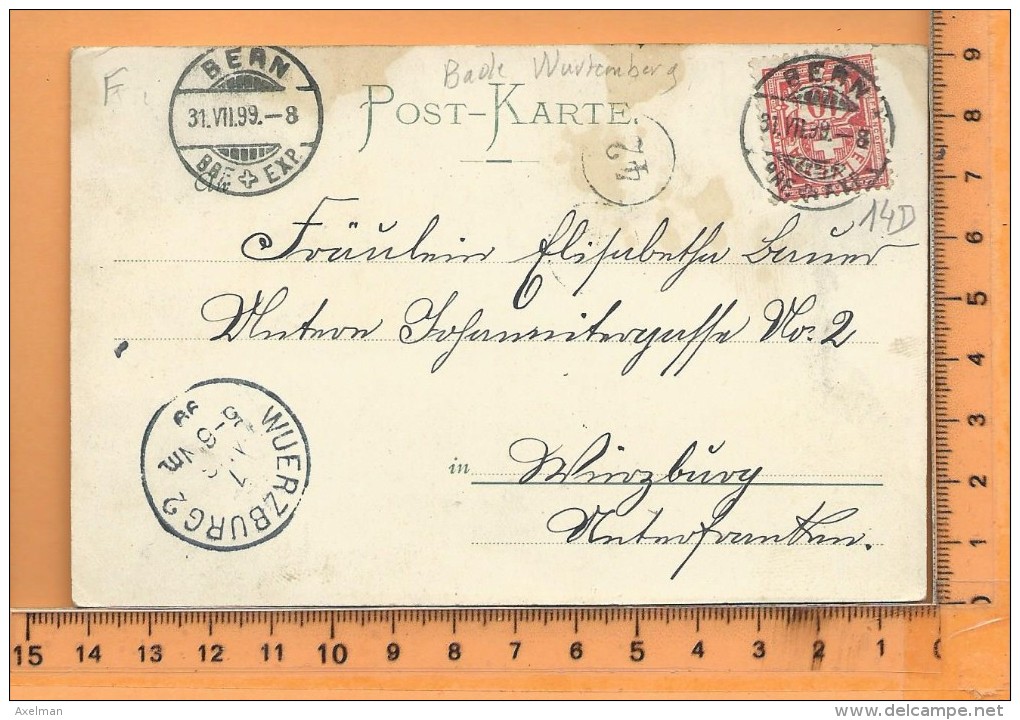 F.
Bade Wurtemberg
BERN
31.VII.99.-8
BRF EXP.
POST-KARTE.
An
42
BERN
31.VII.99.-8
10
14D
Fräulein Elisabetha Bauer
Untere Johannitergasse No. 2
in Würzburg
Unterfranken.
WUERZBURG 2
Vm
15 14 13 12 11 10 9 8 7 6 5 4 3 2 1 0
9
8
7
6
5
4
3
2
1
0
Axelman
www.delcampe.net